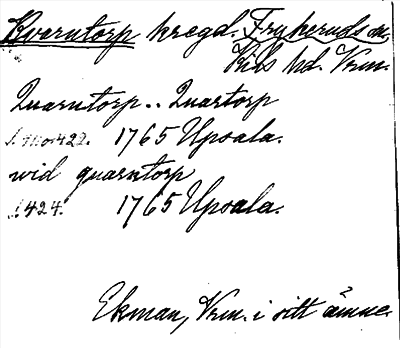 Kvarntorp kregd. Frykeruds sn.
Kils hd. Vrm.
Quarntorp.. Quartorp
1765 Upsala.
wid quarntorp
s. 424. 1765 Upsala.
Ekman, Vrm. i sitt ämne.